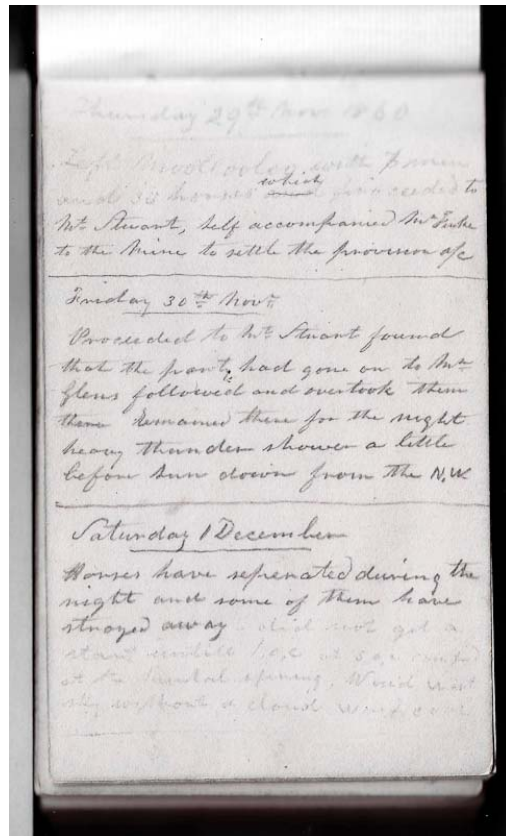 Thursday 29th Nov 1860
Left Moolooloo with 7 men
and 30 horses which proceeded to
Mt. Stuart, self accompanied Mr
to the Mine to settle the provision a/c
Friday 30th Novr
Proceeded to Mt. Stuart found
that the party had gone on to Mr
Glens followed and overtook them
there Remained there for the night
heavy thunder shower a little
before Sun down from the N.W
Saturday 1 December
Horses have seperated during the
night and some of them have
strayed away did not get a
start untill 1 o,c at 5 o,c
at the spring, Wind West
sky without a cloud